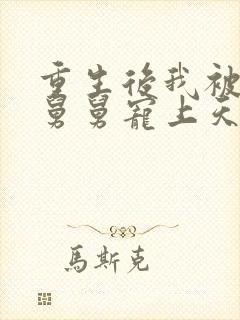 重生後我被
舅舅寵上天
馬斯克